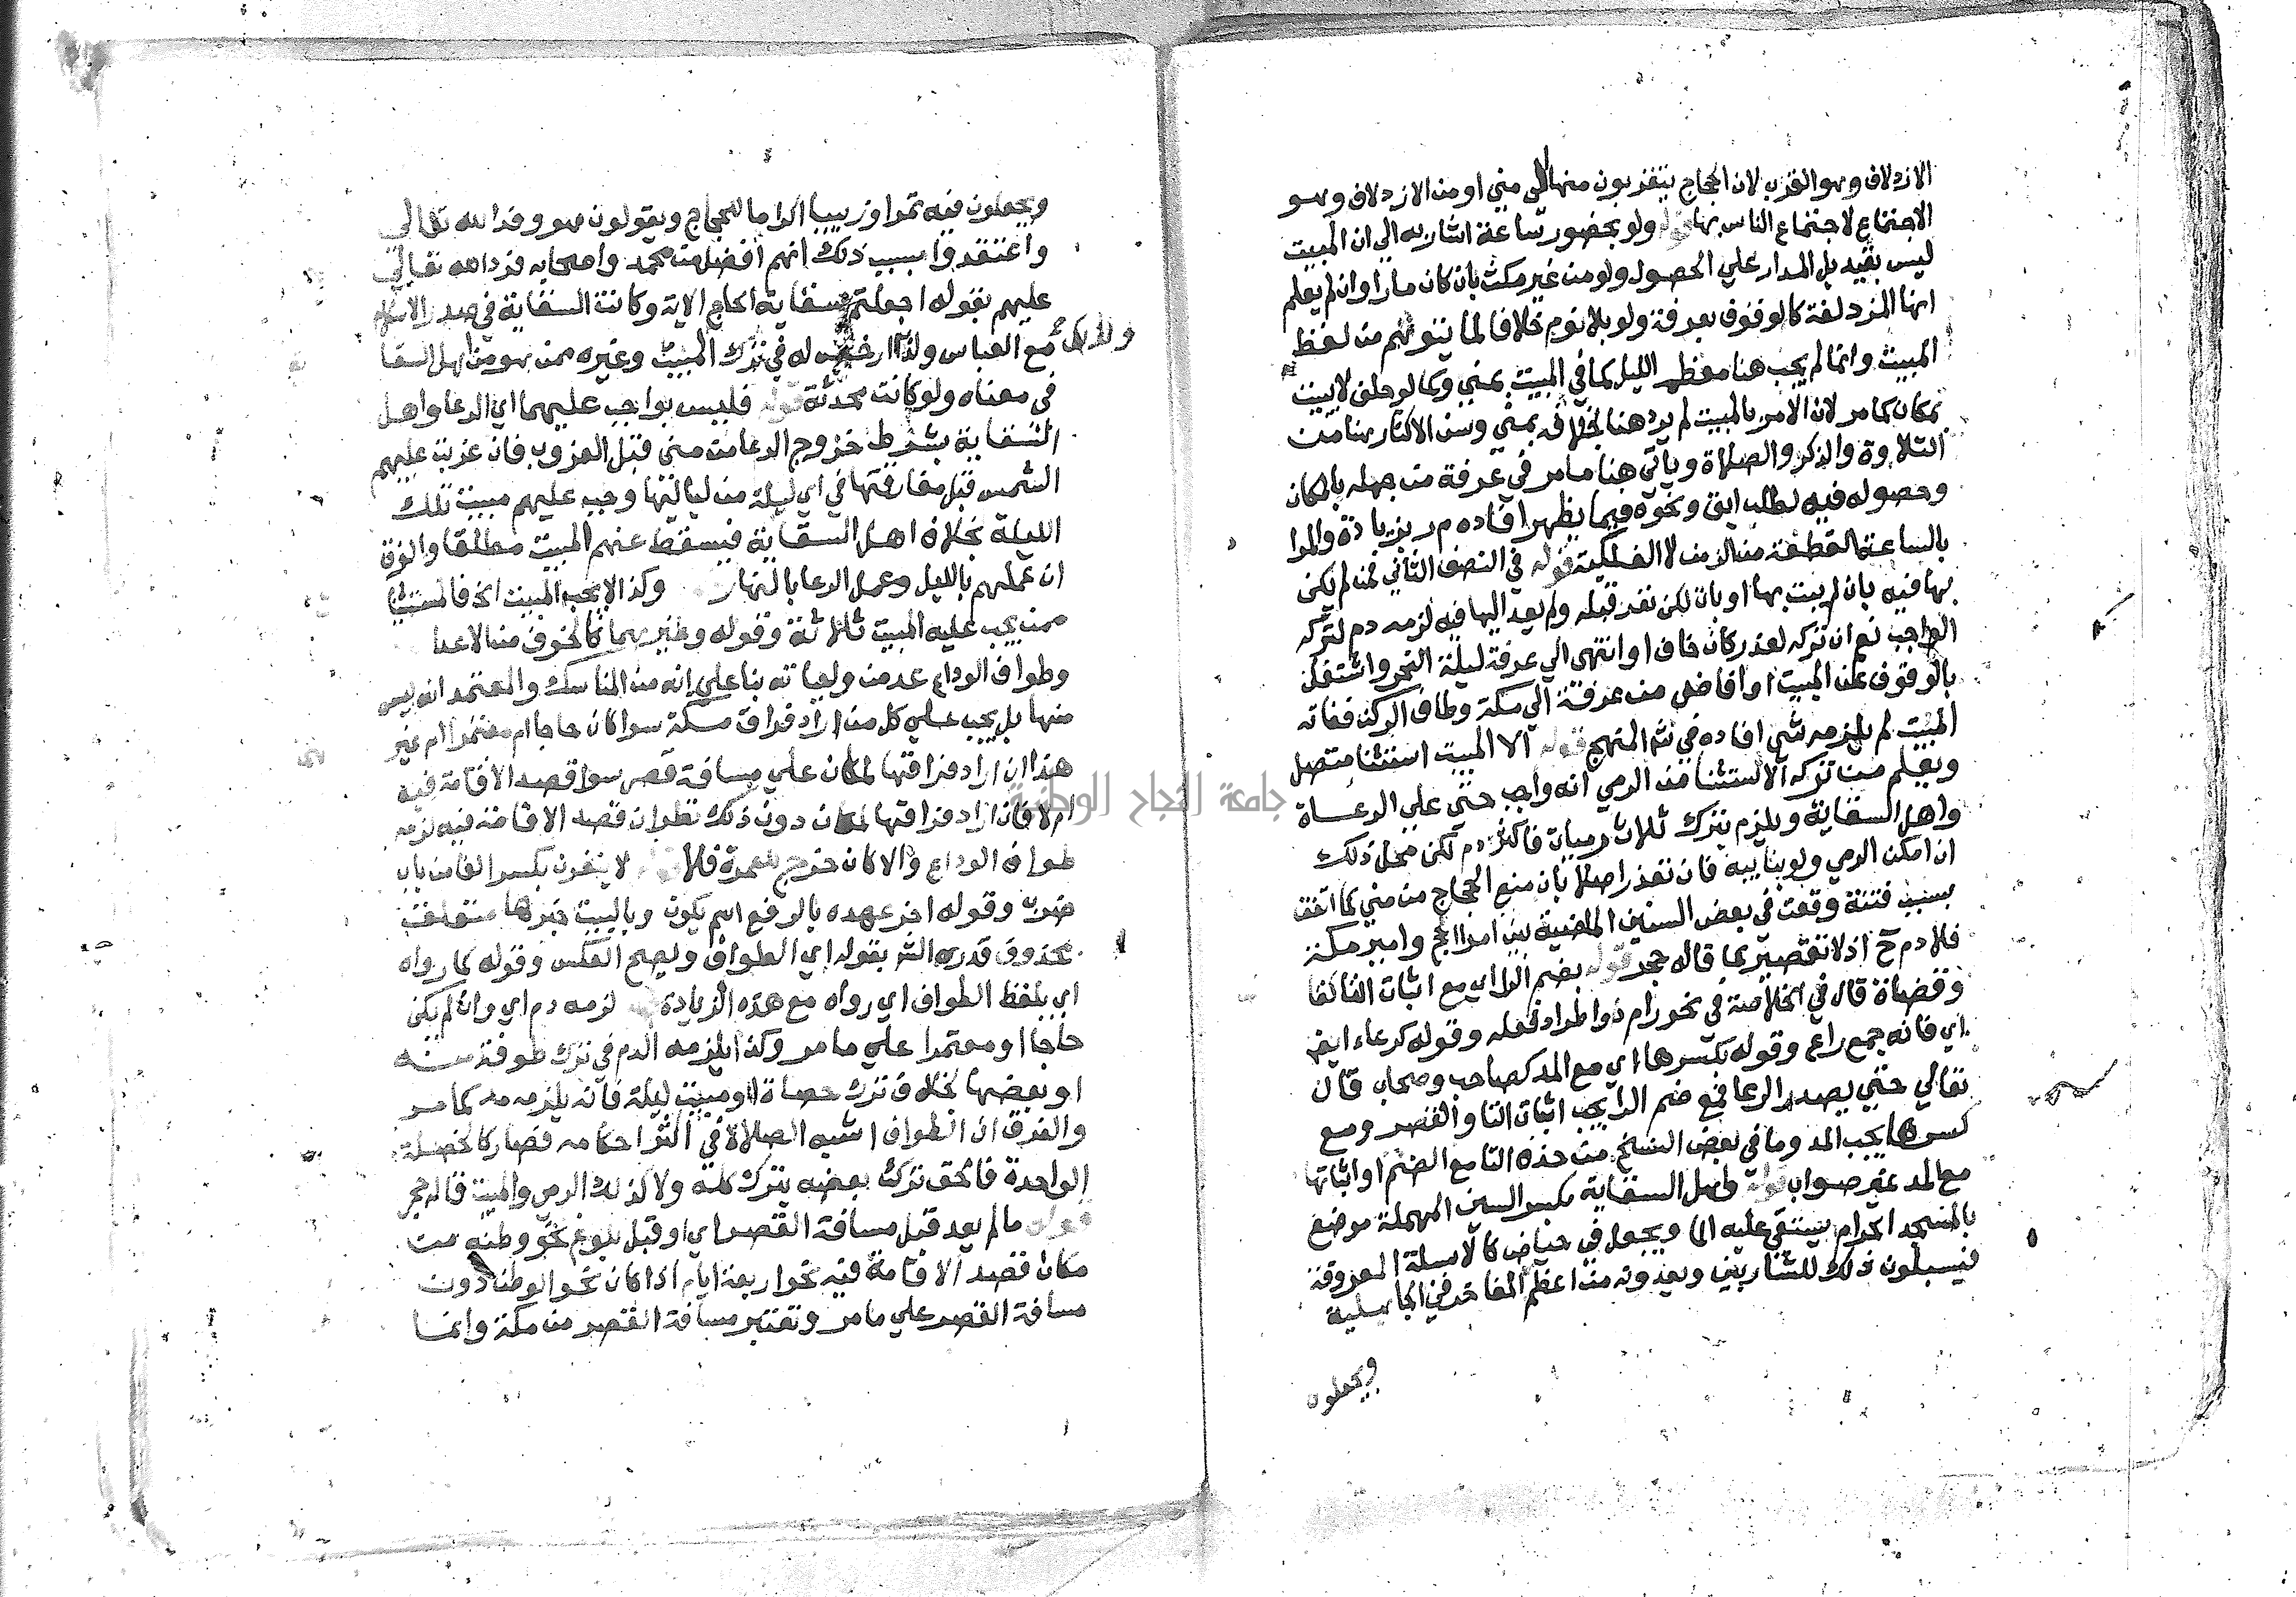 الازدلاف وهو القرب لان الحجاج يتقربون منها الى منى او من الازدلاف وهو
الاجتماع لاجتماع الناس بها قوله ولو بحضور ساعة اشار به الي ان المبيت
ليس بقيد بل المدار علي الحصول ولو من غير مكث بان كان مارا وان لم يعلم
انها المزدلفة كالوقوف بعرفة ولو بلا نوم خلافا لما يتوهم من لفظ
المبيت وانما لم يجب هنا معظم الليل كما في المبيت بمني وكما لو حلف لا يبيت
بمكان كما مر لان الامر بالمبيت لم يرد هنا بخلافه بمني وسن الاكثار هنا من
التلاوة والذكر والصلاة وياتي هنا ما مر في عرفة من جهله بالمكان
وحصوله فيه لطلب ابق ونحوه فيما يظهر افاده م ر بزيادة والمرا
بالساعة القطعة من الزمن لا الفلكية قوله في النصف الثاني فمن لم يكن
بها فيه بان لم يبت بها او بات لكن نفر قبله ولم يعد اليها فيه لزمه دم لتركه
الواجب نعم ان تركه لعذر كان خاف او انتهى الي عرفة ليلة النحر واشتغل
بالوقوف عن المبيت او افاض من عرفة الي مكة وطاف الركن ففاته
المبيت لم يلزمه شي افاده في شرح المنهج قوله الا المبيت استثنا متصل
ويعلم من تركه الاستثنا من الرمي انه واجب حتي علي الرعاة
واهل السقاية ويلزم بترك ثلاث رميات فاكثر دم لكن محل ذلك
ان امكن الرمي ولو بنايبه فان تعذر اصلا بان منع الحجاج من مني كما اتفق
بسبب فتنة وقعت في بعض السنين الماضية بين امرا الحج وامير مكة
فلا دم ح اذ لا تقصير كما قاله حجر قوله بضم الرا اي مع اثبات التا كالقا
وقضاة قال في الخلاصة في نحو رام ذو اطراد فعله وقوله كرعاء ايض
اي فانه جمع راع وقوله بكسرها اي مع المد كصاحب وصحاب قال
تعالي حتي يصدر الرعا فمع ضم الرا يجب اثبات التا والقصر ومع
كسرها يجب المد وما في بعض النسخ من حذف التا مع الضم او اثباتها
مع المد غير صواب قوله واهل السقاية بكسر السين المهملة موضع
بالمسجد الحرام يستقي عليه الما ويجعل في حياض كالاسبلة المعروفة
فيسبلون ذلك للشاربين ويعدونه من اعظم المفاخر في الجاهلية
ويجعلون
ويجعلون فيه تمرا وزبيبا اكراما للحجاج ويقولون هو وفد الله تعالي
واعتقدوا بسبب ذلك انهم افضل من محمد واصحابه فرد الله تعالي
عليهم بقوله اجعلتم سقاية الحاج الاية وكانت السقاية في صدر الاسلام
مع العباس ولذا رخص له في ترك المبيت وغيره ممن هو من اهل السقا
في معناه ولو كانت محدثة قوله فليس بواجب عليهما اي الرعا واهل
السقاية بشرط خروج الرعا من منى قبل الغروب فان غربت عليهم
الشمس قبل مفارقتها في اي ليلة من لياليها وجب عليهم مبيت تلك
الليلة بخلاف اهل السقاية فيسقط عنهم المبيت مطلقا والفرق
ان عملهم بالليل وعمل الرعا بالنهار وكذا لا يجب المبيت الخ فالمستثنا
ممن يجب عليه المبيت ثلاثة وقوله وغيرهما كالخوف من الاعدا
وطواف الوداع عد من واجباته بنا علي انه من المناسك والمعتمد انه ليس
منها بل يجب علي كل من اراد فراق مكة سوا كان حاجا ام معتمرا ام غير
هذا ان اراد فراقها لمكان علي مسافة قصر سوا قصد الاقامة فيه
ام لا فان اراد فراقها لمكان دون ذلك نظر ان قصد الاقامة فيه لزمه
طواف الوداع والا كان خرج للعمرة فلا قوله لا ينفرن بكسر الفا من باب
ضرب وقوله اخر عهده بالرفع اسم يكون وبالبيت خبرها متعلقة
بمحذوف قدره الشر بقوله اي الطواف ويصح العكس وقوله كما رواه
اي بلفظ الطواف اي رواه مع هذه الزيادة قوله لزمه دم اي وان لم يكن
حاجا او معتمرا علي ما مر وكذا يلزمه الدم في ترك طوفة منه
او بعضها بخلاف ترك حصاة او مبيت ليلة فانه يلزمه مد كما مر
والفرق ان الطواف اشبه الصلاة في اكثر احكامه فصار كالخصلة
الواحدة فالحق ترك بعضه بترك كله ولا كذلك الرمي والمبيت قاله حجر
قوله ما لم يعد قبل مسافة القصر اي او قبل بلوغ نحو وطنه من
مكان قصد الاقامة فيه نحو اربعة ايام اذا كان نحو الوطن دون
مسافة القصر علي ما مر وتعتبر مسافة القصر من مكة وانما